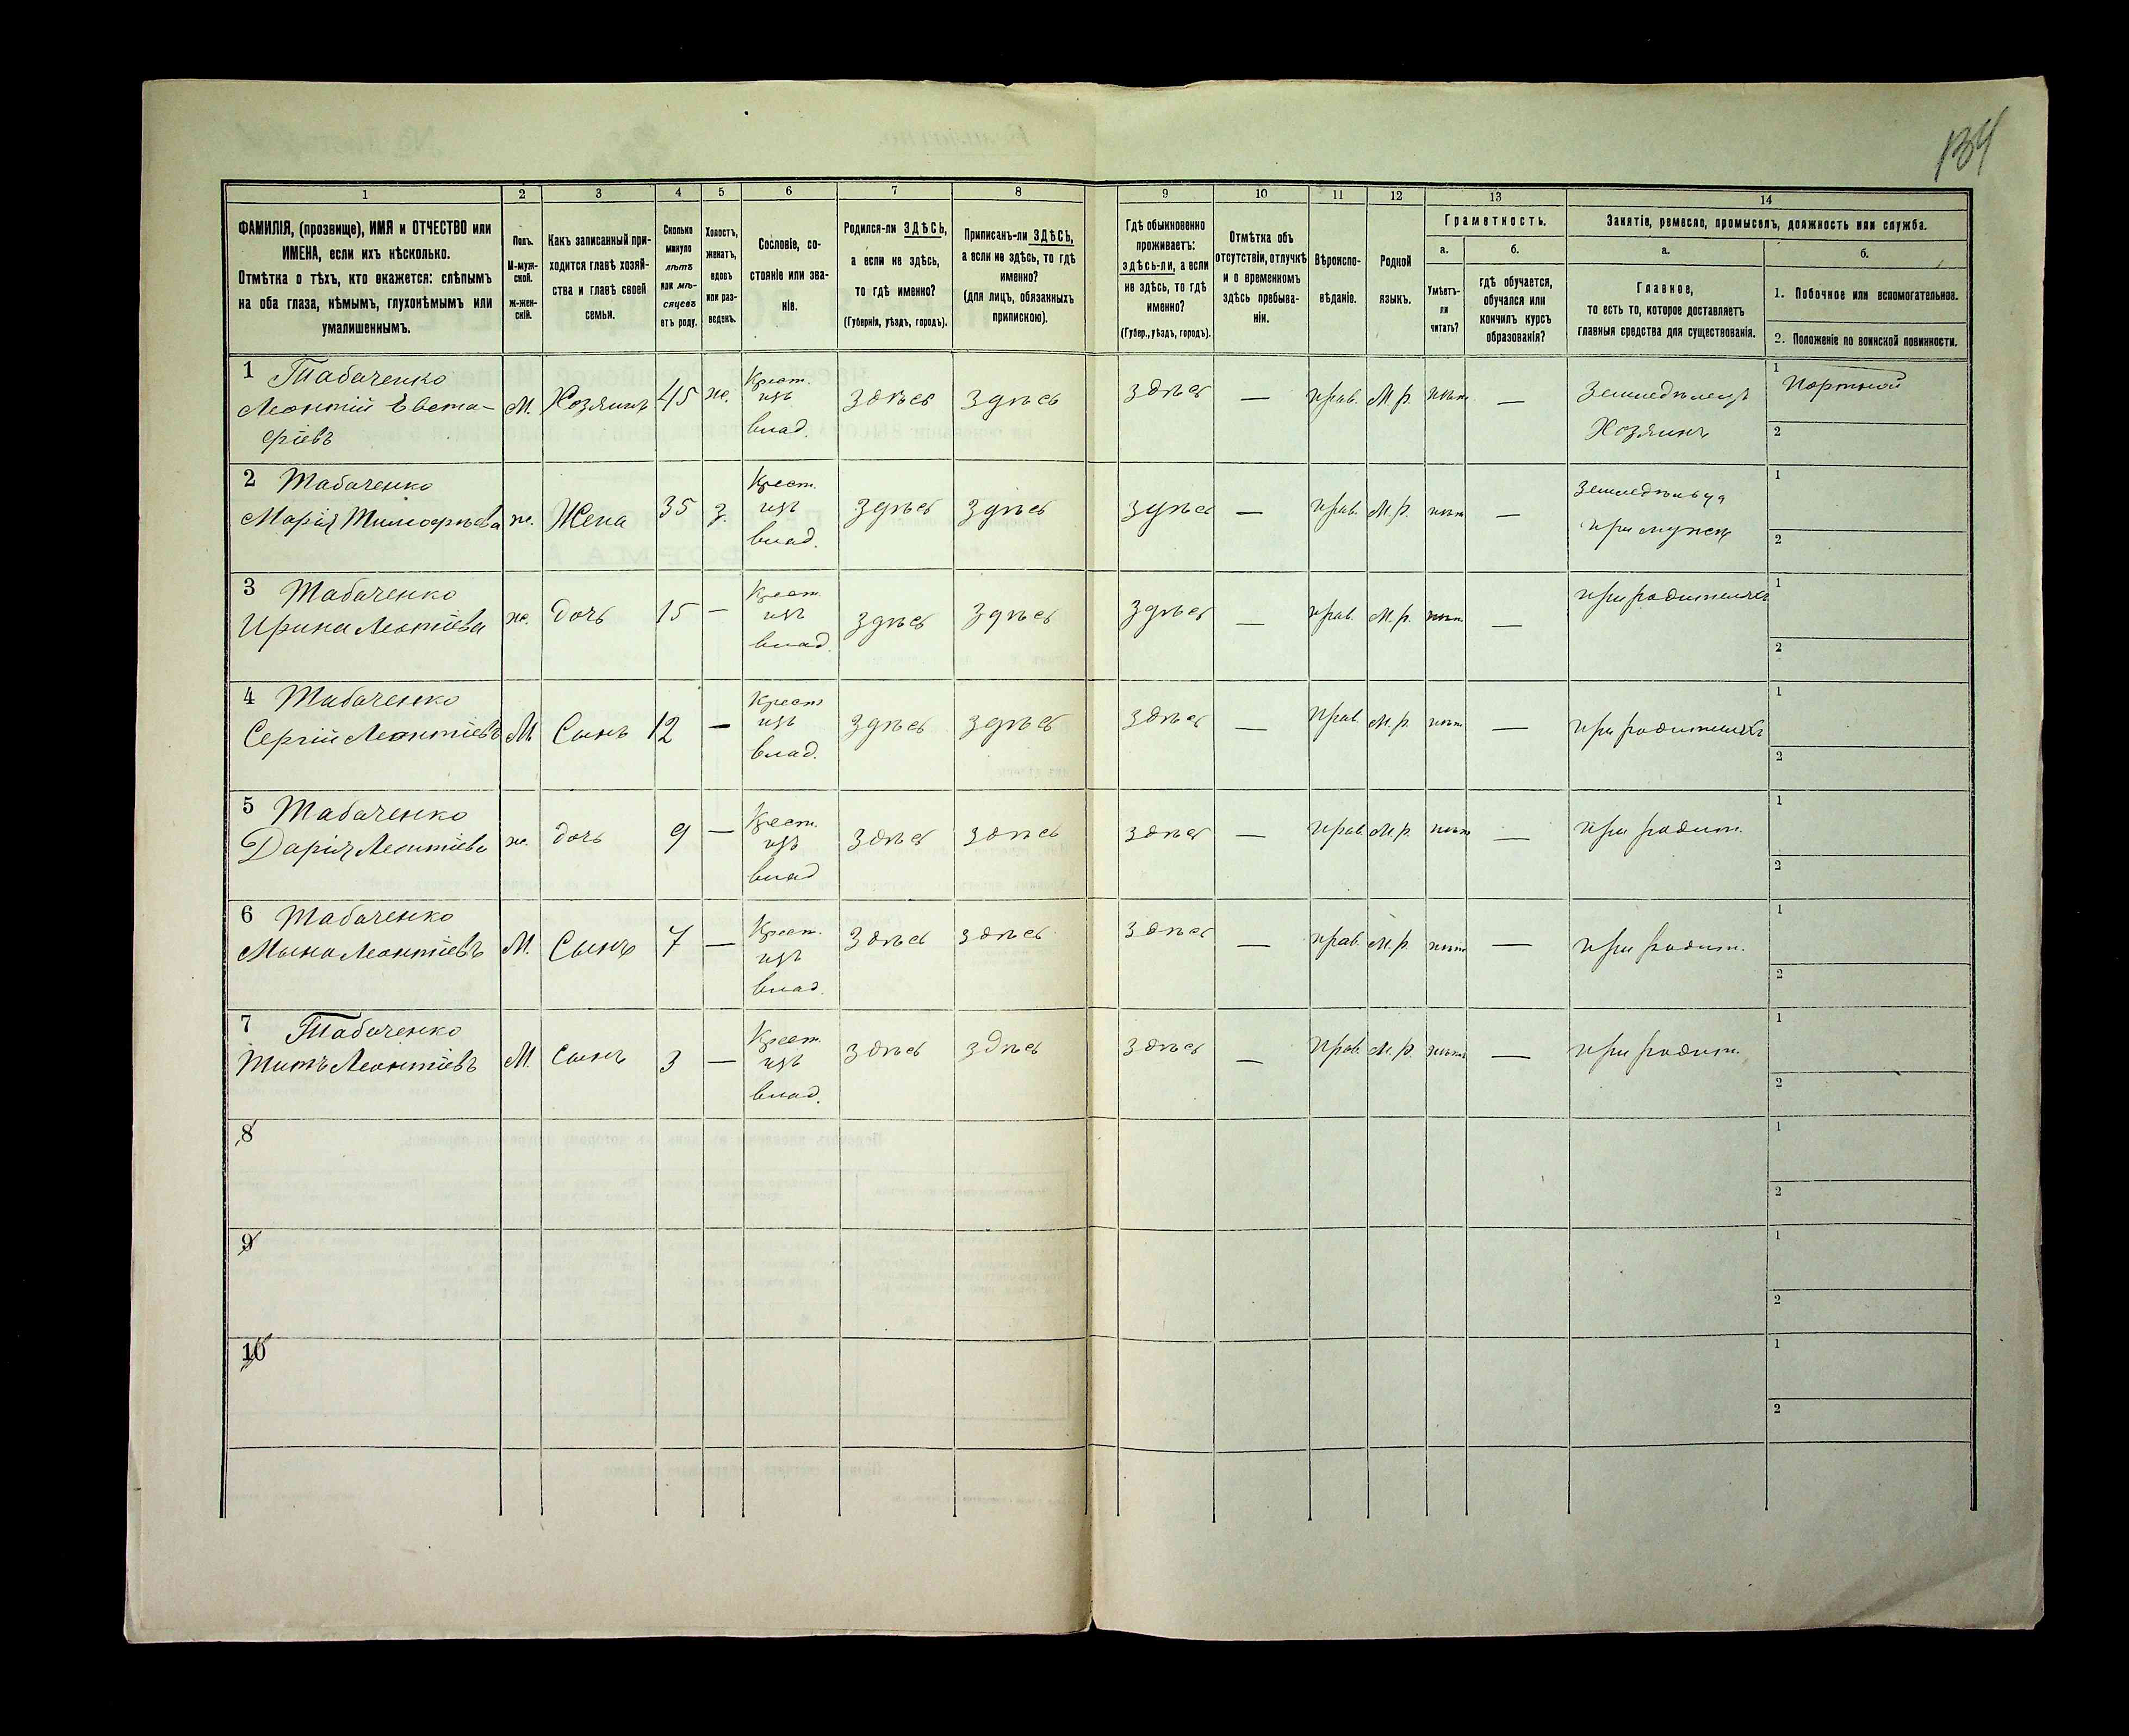 134
1 2 3 4 5 6 7 8 9 10 11 12 13 14
ФАМИЛІЯ, (прозвище), ИМЯ и ОТЧЕСТВО или
ИМЕНА, если ихъ нѣсколько.
Отмѣтка о тѣхъ, кто окажется: слѣпымъ
на оба глаза, нѣмымъ, глухонѣмымъ или
умалишеннымъ.
Полъ.
М-муж-
ской.
Ж-жен-
скій.
Какъ записанный при-
ходится главѣ хозяй-
ства и главѣ своей
семьи.
Сколько
минуло
лѣтъ
или мѣ-
сяцевъ
отъ роду.
Холостъ,
женатъ,
вдовъ
или раз-
веденъ.
Сословіе, со-
стояніе или зва-
ніе.
Родился-ли ЗДѢСЬ,
а если не здѣсь,
то гдѣ именно?
(Губернія, уѣздъ, городъ).
Приписанъ-ли ЗДѢСЬ,
а если не здѣсь, то гдѣ
именно?
(для лицъ, обязанныхъ
припискою).
Гдѣ обыкновенно
проживаетъ:
здѣсь-ли, а если
не здѣсь, то гдѣ
именно?
(Губер., уѣздъ, городъ).
Отмѣтка объ
отсутствіи, отлучкѣ
и о временномъ
здѣсь пребыва-
ніи.
Вѣроиспо-
вѣданіе.
Родной
языкъ.
Грамотность.
а.
Умѣетъ-
ли
читать?
б.
гдѣ обучается,
обучался или
кончилъ курсъ
образованія?
Занятіе, ремесло, промыселъ, должность или служба.
а.
Главное,
то есть то, которое доставляетъ
главныя средства для существованія.
б.
1. Побочное или вспомогательное.
2. Положеніе по воинской повинности.
1 Табаченко
Леонтій Евста-
фіевъ
М. Хозяинъ 45 ж.
Крест.
изъ
влад.
здѣсь здѣсь здѣсь — прав. М. р. нѣт —
Земледѣлецъ
Хозяинъ
1 Портной
2
2 Табаченко
Марія Тимофѣева
ж. Жена 35 з.
Крест.
изъ
влад.
здѣсь здѣсь здѣсь — прав. М. р. нѣт —
земледѣльца
при мужѣ
1
2
3 Табаченко
Ирина Леонтіева
ж. дочь 15 —
Крест.
изъ
влад.
здѣсь здѣсь здѣсь — прав. М. р. нѣт —
при родителяхъ
1
2
4 Табаченко
Сергій Леонтіевъ
М. Сынъ 12 —
Крест
изъ
влад.
здѣсь здѣсь здѣсь — прав. М. р. нѣт —
при родителяхъ
1
2
5 Табаченко
Дарія Леонтіева
ж. дочь 9 —
Крест.
изъ
влад
здѣсь здѣсь здѣсь — прав. М. р. нѣт —
при родит.
1
2
6 Табаченко
Мина Леонтіевъ
М. Сынъ 7 —
Крест.
изъ
влад.
здѣсь здѣсь здѣсь — прав. М. р. нѣт —
при родит.
1
2
7 Табаченко
Титъ Леонтіевъ
М. Сынъ 3 —
Крест.
изъ
влад.
здѣсь здѣсь здѣсь — прав. М. р. —
при родит.
1
2
8
1
2
9
1
2
10
1
2